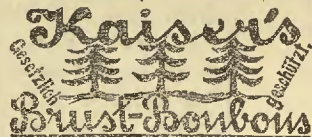 Kaiser's
Gesetzlich geschützt.
Brust-Bonbons